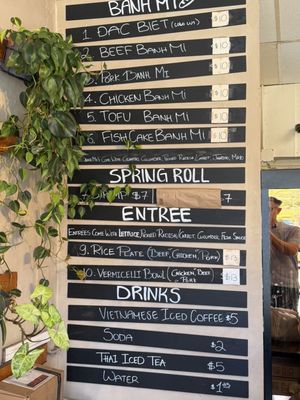 BANH MI
1 DAC BIET (COLD CUT) $10
2 BEEF BANH MI $10
3. PORK BANH MI $10
4. CHICKEN BANH MI $10
5. TOFU BANH MI $10
6. FISH CAKE BANH MI $10
SPRING ROLL
SHRIMP $7 7
ENTREE
ENTREES COME WITH LETTUCE, PICKLED RADISH/CARROT, CUCUMBER, FISH SAUCE
9. RICE PLATE (BEEF, CHICKEN, PORK) $13
10. VERMICELLI BOWL (CHICKEN, BEEF, PORK) $13
DRINKS
VIETNAMESE ICED COFFEE $5
SODA $2
THAI ICED TEA $5
WATER